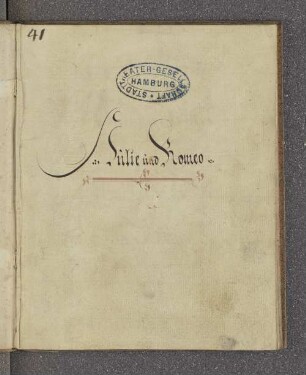 41
STADTTHEATER-GESELLSCHAFT
HAMBURG
Julie und Romeo